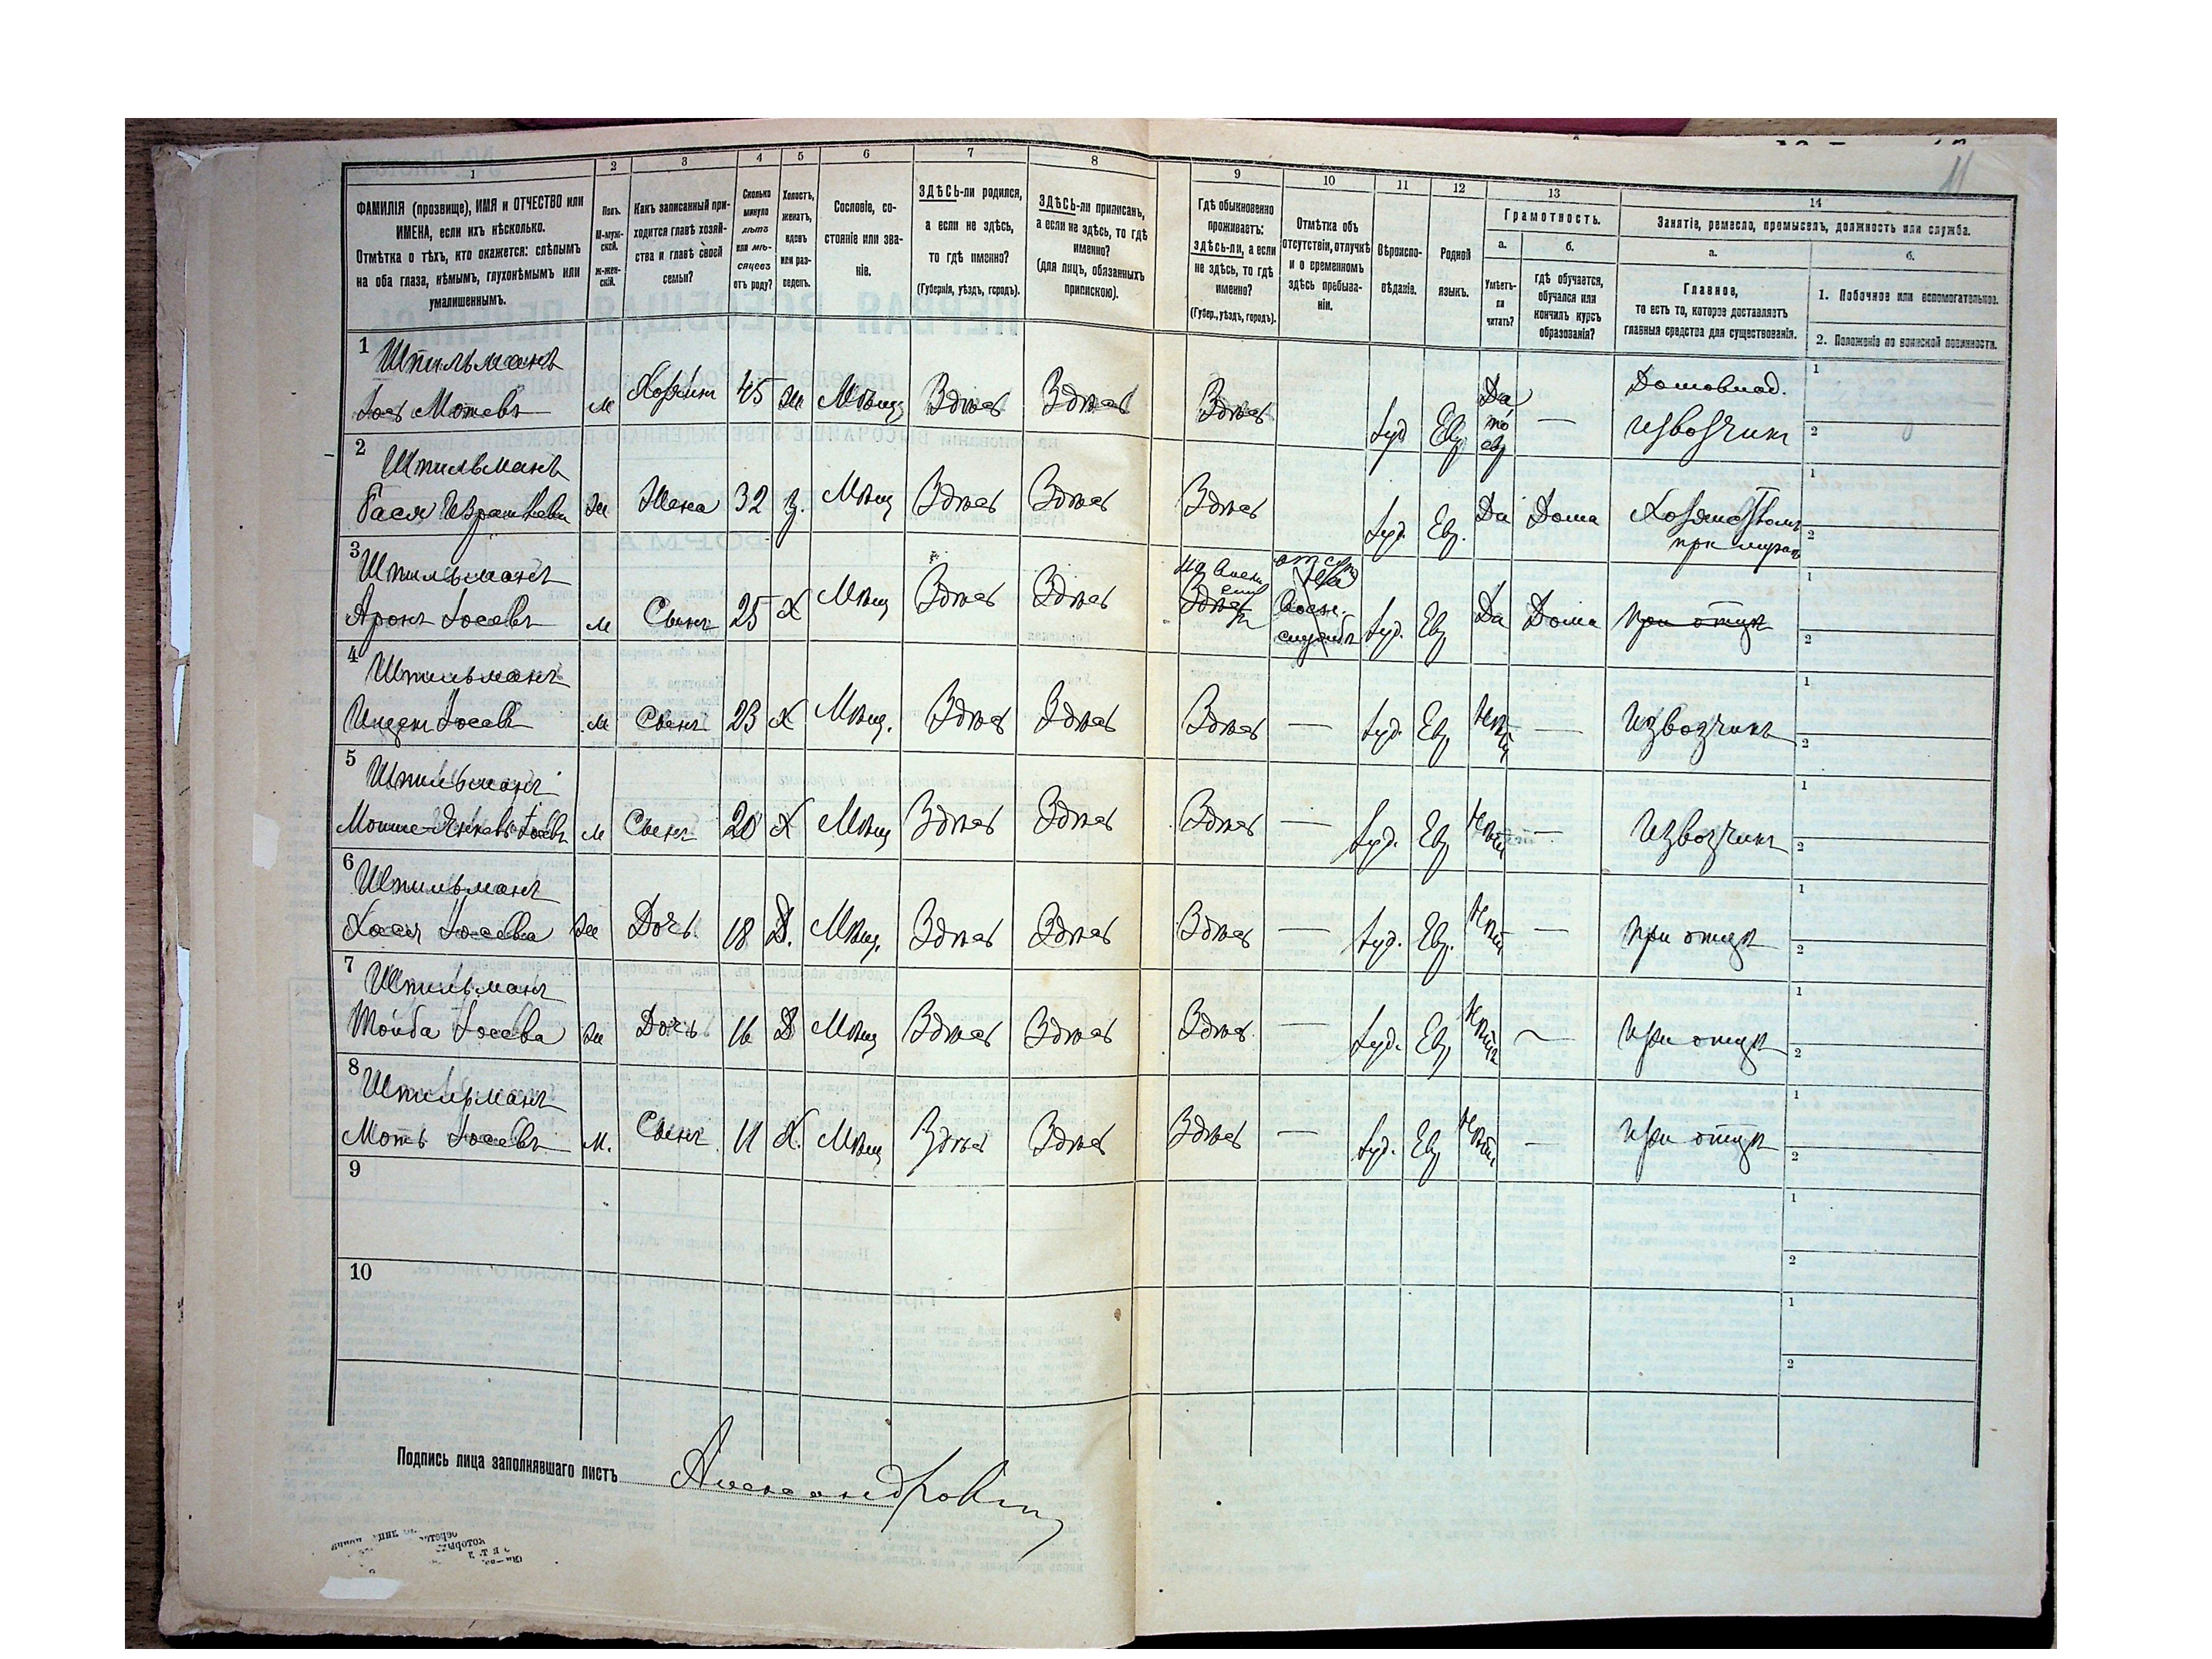 1 2 3 4 5 6 7 8 9 10 11 12 13 14
ФАМИЛІЯ (прозвище), ИМЯ и ОТЧЕСТВО или
ИМЕНА, если ихъ нѣсколько.
Отмѣтка о тѣхъ, кто окажется: слѣпымъ
на оба глаза, нѣмымъ, глухонѣмымъ или
умалишеннымъ.
Полъ.
М-муж-
ской.
Ж-жен-
скій.
Какъ записанный при-
ходится главѣ хозяй-
ства и главѣ своей
семьи?
Сколько
минуло
лѣтъ
или мѣ-
сяцевъ
отъ роду?
Холостъ,
женатъ,
вдовъ
или раз-
веденъ.
Сословіе, со-
стояніе или зва-
ніе.
ЗДѢСЬ-ли родился,
а если не здѣсь,
то гдѣ именно?
(Губернія, уѣздъ, городъ).
ЗДѢСЬ-ли приписанъ,
а если не здѣсь, то гдѣ
именно?
(для лицъ, обязанныхъ
припискою).
Гдѣ обыкновенно
проживаетъ:
здѣсь-ли, а если
не здѣсь, то гдѣ
именно?
(Губер., уѣздъ, городъ).
Отмѣтка объ
отсутствіи, отлучкѣ
и о временномъ
здѣсь пребыва-
ніи.
Вѣроиспо-
вѣданіе.
Родной
языкъ.
Грамотность.
а.
Умѣетъ-
ли
читать?
б.
гдѣ обучается,
обучался или
кончилъ курсъ
образованія?
Занятіе, ремесло, промыселъ, должность или служба.
а.
Главное,
то есть то, которое доставляетъ
главныя средства для существованія.
б.
1. Побочное или вспомогательное.
2. Положеніе по воинской повинности.
11
1 Штильманъ
Мотевъ м Хозяинъ 45 ж Мѣщ Здѣсь Здѣсь Здѣсь Іуд Евр Да по евр — Домовлад. 1
извозчикъ 2
2 Штильманъ
Бася ж Жена 32 з. Мѣщ Здѣсь Здѣсь Здѣсь Іуд. Евр. Да Дома 1
при мужѣ 2
3 Штильманъ
Аронъ Іосевъ м Сынъ 25 Х Мѣщ Здѣсь Здѣсь Здѣсь Воен. службѣ Іуд. Евр Да Дома при отцѣ 1 2
4 Штильманъ
Іосевъ м Сынъ 23 Х Мѣщ. Здѣсь Здѣсь Здѣсь — Іуд. Евр Нѣтъ — Извозчикъ 1 2
5 Штильманъ
Мошше-Янкевъ Іосевъ м Сынъ 20 Х Мѣщ Здѣсь Здѣсь Здѣсь — Іуд. Евр Нѣтъ — Извозчикъ 1 2
6 Штильманъ
Хася Іосева ж Дочь. 18 Д. Мѣщ. Здѣсь Здѣсь Здѣсь — Іуд. Евр. Нѣтъ — при отцѣ 1 2
7 Штильманъ
Тойба Іосева ж Дочь 16 Д Мѣщ Здѣсь Здѣсь Здѣсь — Іуд. Евр Нѣтъ — при отцѣ 1 2
8 Штильманъ
Моть Іосевъ м. Сынъ 11 Х. Мѣщ Здѣсь Здѣсь Здѣсь — Іуд. Евр Нѣтъ — при отцѣ 1 2
9 1 2
10 1 2
Подпись лица заполнявшаго листъ Александрович